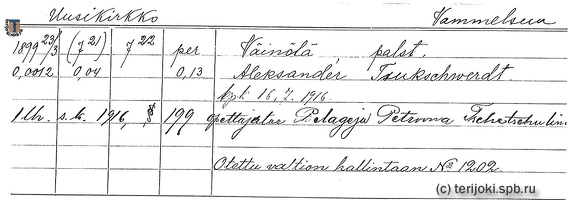 Uusikirkko Vammelsuu
1899 23/3 (J 21) J 22 per Väinölä, palst.
0,0012 0,04 0,13 Aleksander Tsukschwerdt.
kpk 16.7.1916.
1 lh. s.k. 1916, § 199 opettajatar Pelageja Petrovna Tschetschulin
Otettu valtion hallintaan No 1202.
(c) terijoki.spb.ru